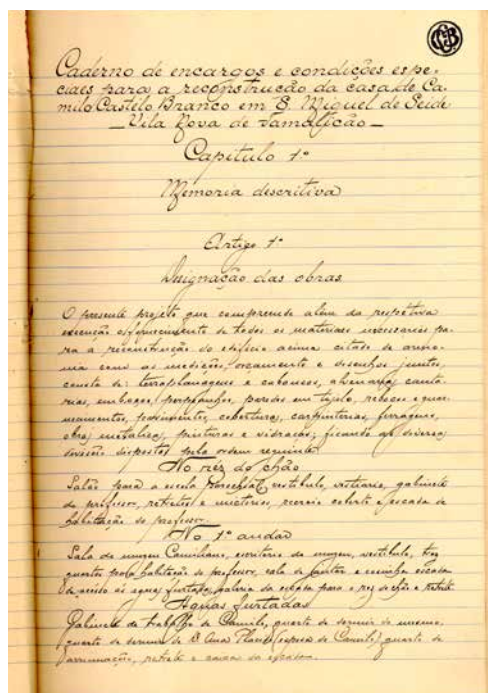 CCB
Caderno de encargos e condições espe-
ciaes para a reconstrucção da casa de Ca-
milo Castelo Branco em S. Miguel de Seide
— Vila Nova de Famalicão —
Capitulo 1º
Memoria descritiva
Artigo 1º
Designação das obras
O presente projéto que compreende alem da respetiva
execução o fornecimento de todos os materiaes necessarios pa-
ra a reconstrucção do edificio acima citado de armo-
nia com as medições, orçamento e desenhos juntos,
consta de: terraplanagens e caboucos, alvenaria, canta-
rias, emboços, perpeanhos, paredes em tijolo, rebocos e guar-
necimentos, pavimentos, cobertura, carpinterias, ferragens,
obra metalica, pinturas e vidraças; ficando as diversas
divisões dispostas pela ordem seguinte:
No réz do chão
Salão para a escola, vestibulo, vestiario, gabinete
do professor, retretes e mictorios, recreio coberto e escada de
habitação do professor.
No 1º andar
Sala do museu Camiliano, escritorio do museu, vestibulo, tres
quartos para habitação do professor, sala de jantar e cosinha escada
de acesso ás aguas furtadas, galeria da escada para o rez do chão e retrete.
Aguas Furtadas
Gabinete de trabalho de Camilo, quarto de dormir do mesmo,
quarto de dormir de D. Ana Placido (esposa de Camilo) quarto de
arrumação, retrete e caixa da escada.